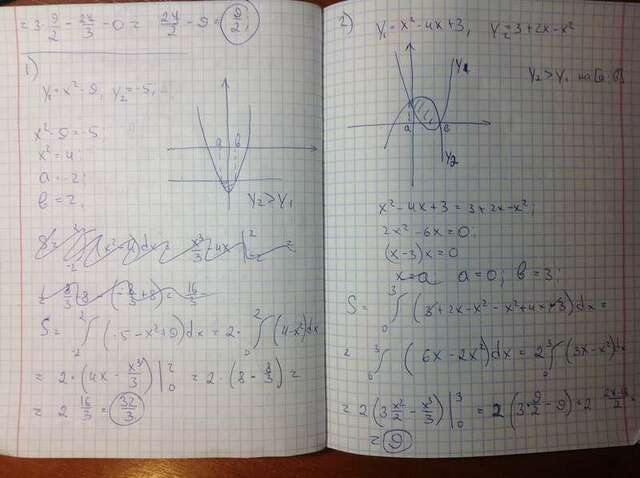 = 3·9/2 - 27/3 - 0 = 27/2 - 9 = 9/2;
1)
y₁ = x² - 9, y₂ = -5;
x² - 9 = -5;
x² = 4;
a = -2;
b = 2;
a b
y₂ > y₁
S = ∫₋₂² (-5 - x² + 9)dx = 2·∫₀² (4 - x²)dx
= 2·(4x - x³/3)|₀² = 2·(8 - 8/3) =
= 2·16/3 = 32/3
2) y₁ = x² - 4x + 3, y₂ = 3 + 2x - x²
y₁
y₂ > y₁ на [a; b]
a b
y₂
x² - 4x + 3 = 3 + 2x - x²;
2x² - 6x = 0;
(x - 3)x = 0
a = 0; b = 3;
S = ∫₀³ (3 + 2x - x² - x² + 4x - 3)dx =
∫₀³ (6x - 2x²)dx = 2∫₀³ (3x - x²)dx
= 2(3x²/2 - x³/3)|₀³ = 2(3·9/2 - 9) = 2
= 9